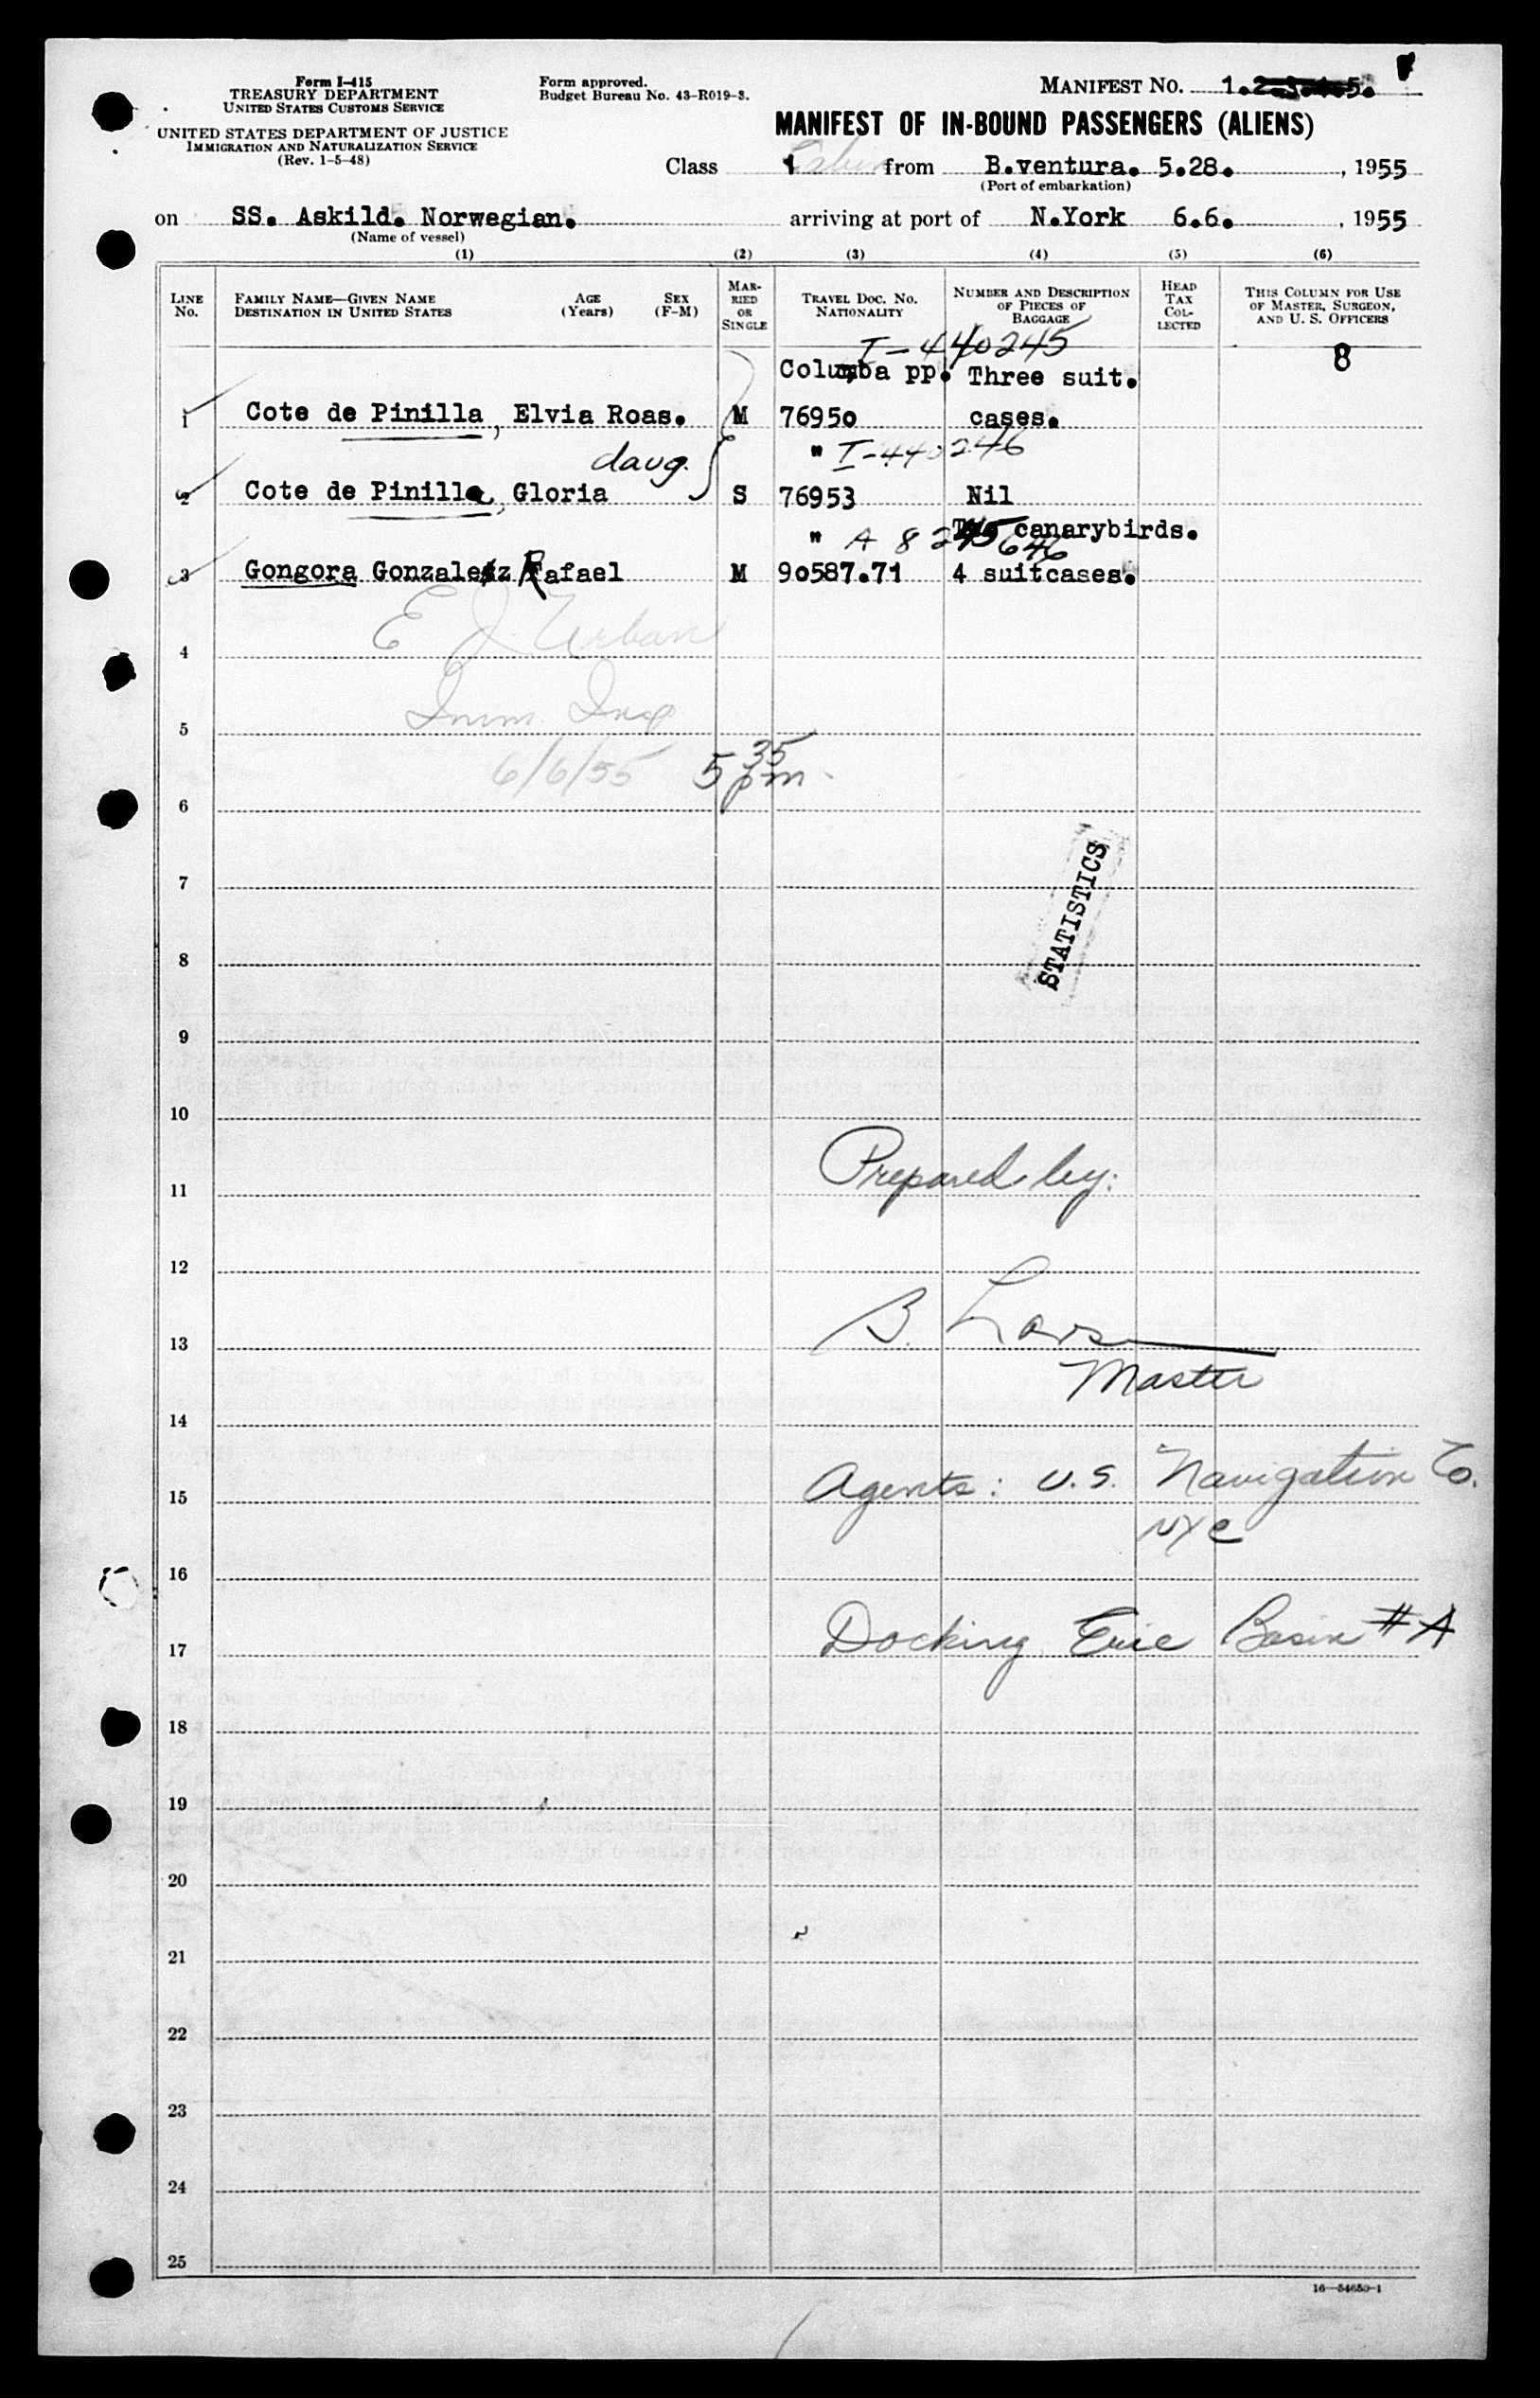 Form I-415
TREASURY DEPARTMENT
UNITED STATES CUSTOMS SERVICE
UNITED STATES DEPARTMENT OF JUSTICE
IMMIGRATION AND NATURALIZATION SERVICE
(Rev. 1-5-48)
Form approved.
Budget Bureau No. 43-R019-3.
MANIFEST NO. 1.2.3.4.5.
MANIFEST OF IN-BOUND PASSENGERS (ALIENS)
Class 1 Cabin from B.ventura. 5.28., 1955
(Port of embarkation)
on SS. Askild. Norwegian. arriving at port of N.York 6.6., 1955
(Name of vessel)
(1) (2) (3) (4) (5) (6)
LINE No.
FAMILY NAME—GIVEN NAME
DESTINATION IN UNITED STATES
AGE (Years)
SEX (F-M)
MARRIED OR SINGLE
TRAVEL DOC. NO.
NATIONALITY
NUMBER AND DESCRIPTION OF PIECES OF BAGGAGE
HEAD TAX COLLECTED
THIS COLUMN FOR USE OF MASTER, SURGEON, AND U. S. OFFICERS
I-440245 8
Columba pp. Three suit.
1 Cote de Pinilla, Elvia Roas. M 76950 cases.
daug. " I-440246
2 Cote de Pinilla, Gloria S 76953 Nil
" A 8 245 646 canarybirds.
3 Gongora Gonzalez Rafael M 90587.71 4 suitcases.
E J. Urban
4
Imm. Insp
5
6/6/55 5 35 pm
6
7
STATISTICS
8
9
10
Prepared by:
11
12
B. Lars
13
Master
14
Agents: U.S. Navigation Co.
15
NYC
16
Docking Erie Basin #A
17
18
19
20
21
22
23
24
25
16—54650-1